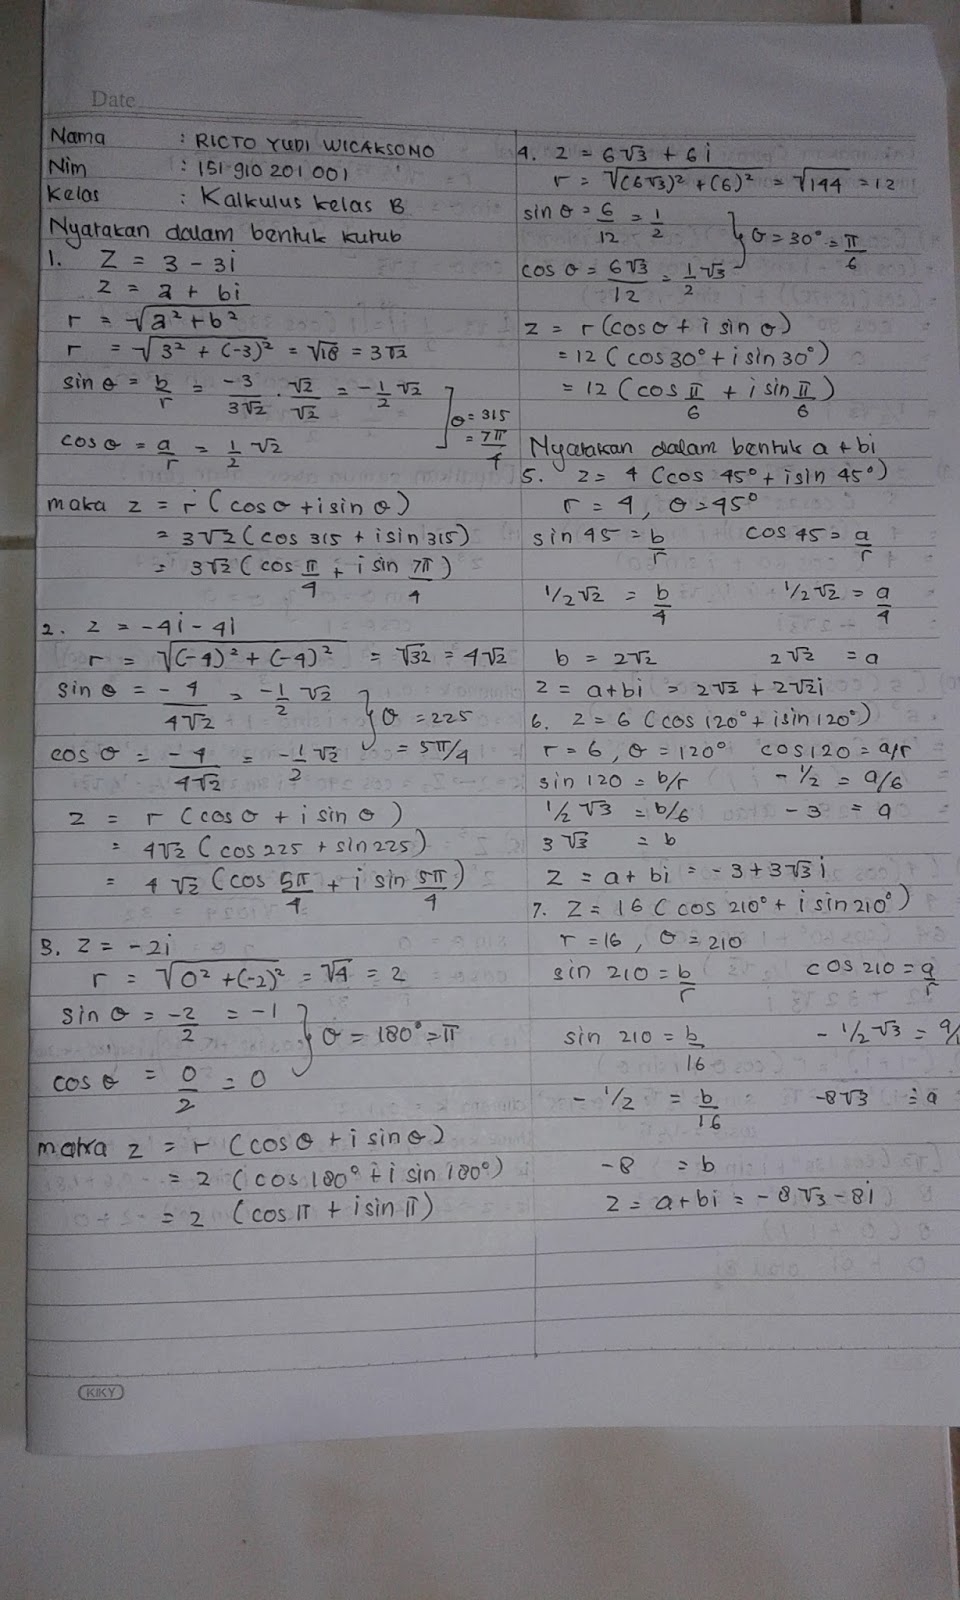 Date
Nama : RICTO YUDI WICAKSONO
Nim : 151 910 201 001
Kelas : Kalkulus kelas B
Nyatakan dalam bentuk kutub
1. Z = 3 - 3i
Z = a + bi
r = √(a² + b²)
r = √(3² + (-3)²) = √18 = 3√2
sin θ = b/r = -3/3√2 · √2/√2 = -1/2 √2
cos θ = a/r = 1/2 √2
} θ = 315 = 7π/4
maka z = r (cos θ + i sin θ)
= 3√2 (cos 315 + i sin 315)
= 3√2 (cos π/4 + i sin 7π/4)
2. z = -4i - 4i
r = √((-4)² + (-4)²) = √32 = 4√2
sin θ = -4/4√2 = -1/2 √2
cos θ = -4/4√2 = -1/2 √2
} θ = 225 = 5π/4
z = r (cos θ + i sin θ)
= 4√2 (cos 225 + sin 225)
= 4√2 (cos 5π/4 + i sin 5π/4)
3. z = -2i
r = √(0² + (-2)²) = √4 = 2
sin θ = -2/2 = -1
cos θ = 0/2 = 0
} θ = 180° = π
maka z = r (cos θ + i sin θ)
= 2 (cos 180° + i sin 180°)
= 2 (cos π + i sin π)
KIKY
4. z = 6√3 + 6i
r = √((6√3)² + (6)²) = √144 = 12
sin θ = 6/12 = 1/2
cos θ = 6√3/12 = 1/2 √3
} θ = 30° = π/6
z = r (cos θ + i sin θ)
= 12 (cos 30° + i sin 30°)
= 12 (cos π/6 + i sin π/6)
Nyatakan dalam bentuk a + bi
5. z = 4 (cos 45° + i sin 45°)
r = 4, θ = 45°
sin 45 = b/r cos 45 = a/r
1/2 √2 = b/4 1/2 √2 = a/4
b = 2√2 2√2 = a
z = a + bi = 2√2 + 2√2i
6. z = 6 (cos 120° + i sin 120°)
r = 6, θ = 120° cos 120 = a/r
sin 120 = b/r - 1/2 = a/6
1/2 √3 = b/6 - 3 = a
3√3 = b
z = a + bi = - 3 + 3√3 i
7. Z = 16 (cos 210° + i sin 210°)
r = 16, θ = 210
sin 210 = b/r cos 210 = a/r
sin 210 = b/16 - 1/2 √3 = a/
- 1/2 = b/16 -8√3 = a
-8 = b
z = a + bi = - 8√3 - 8i